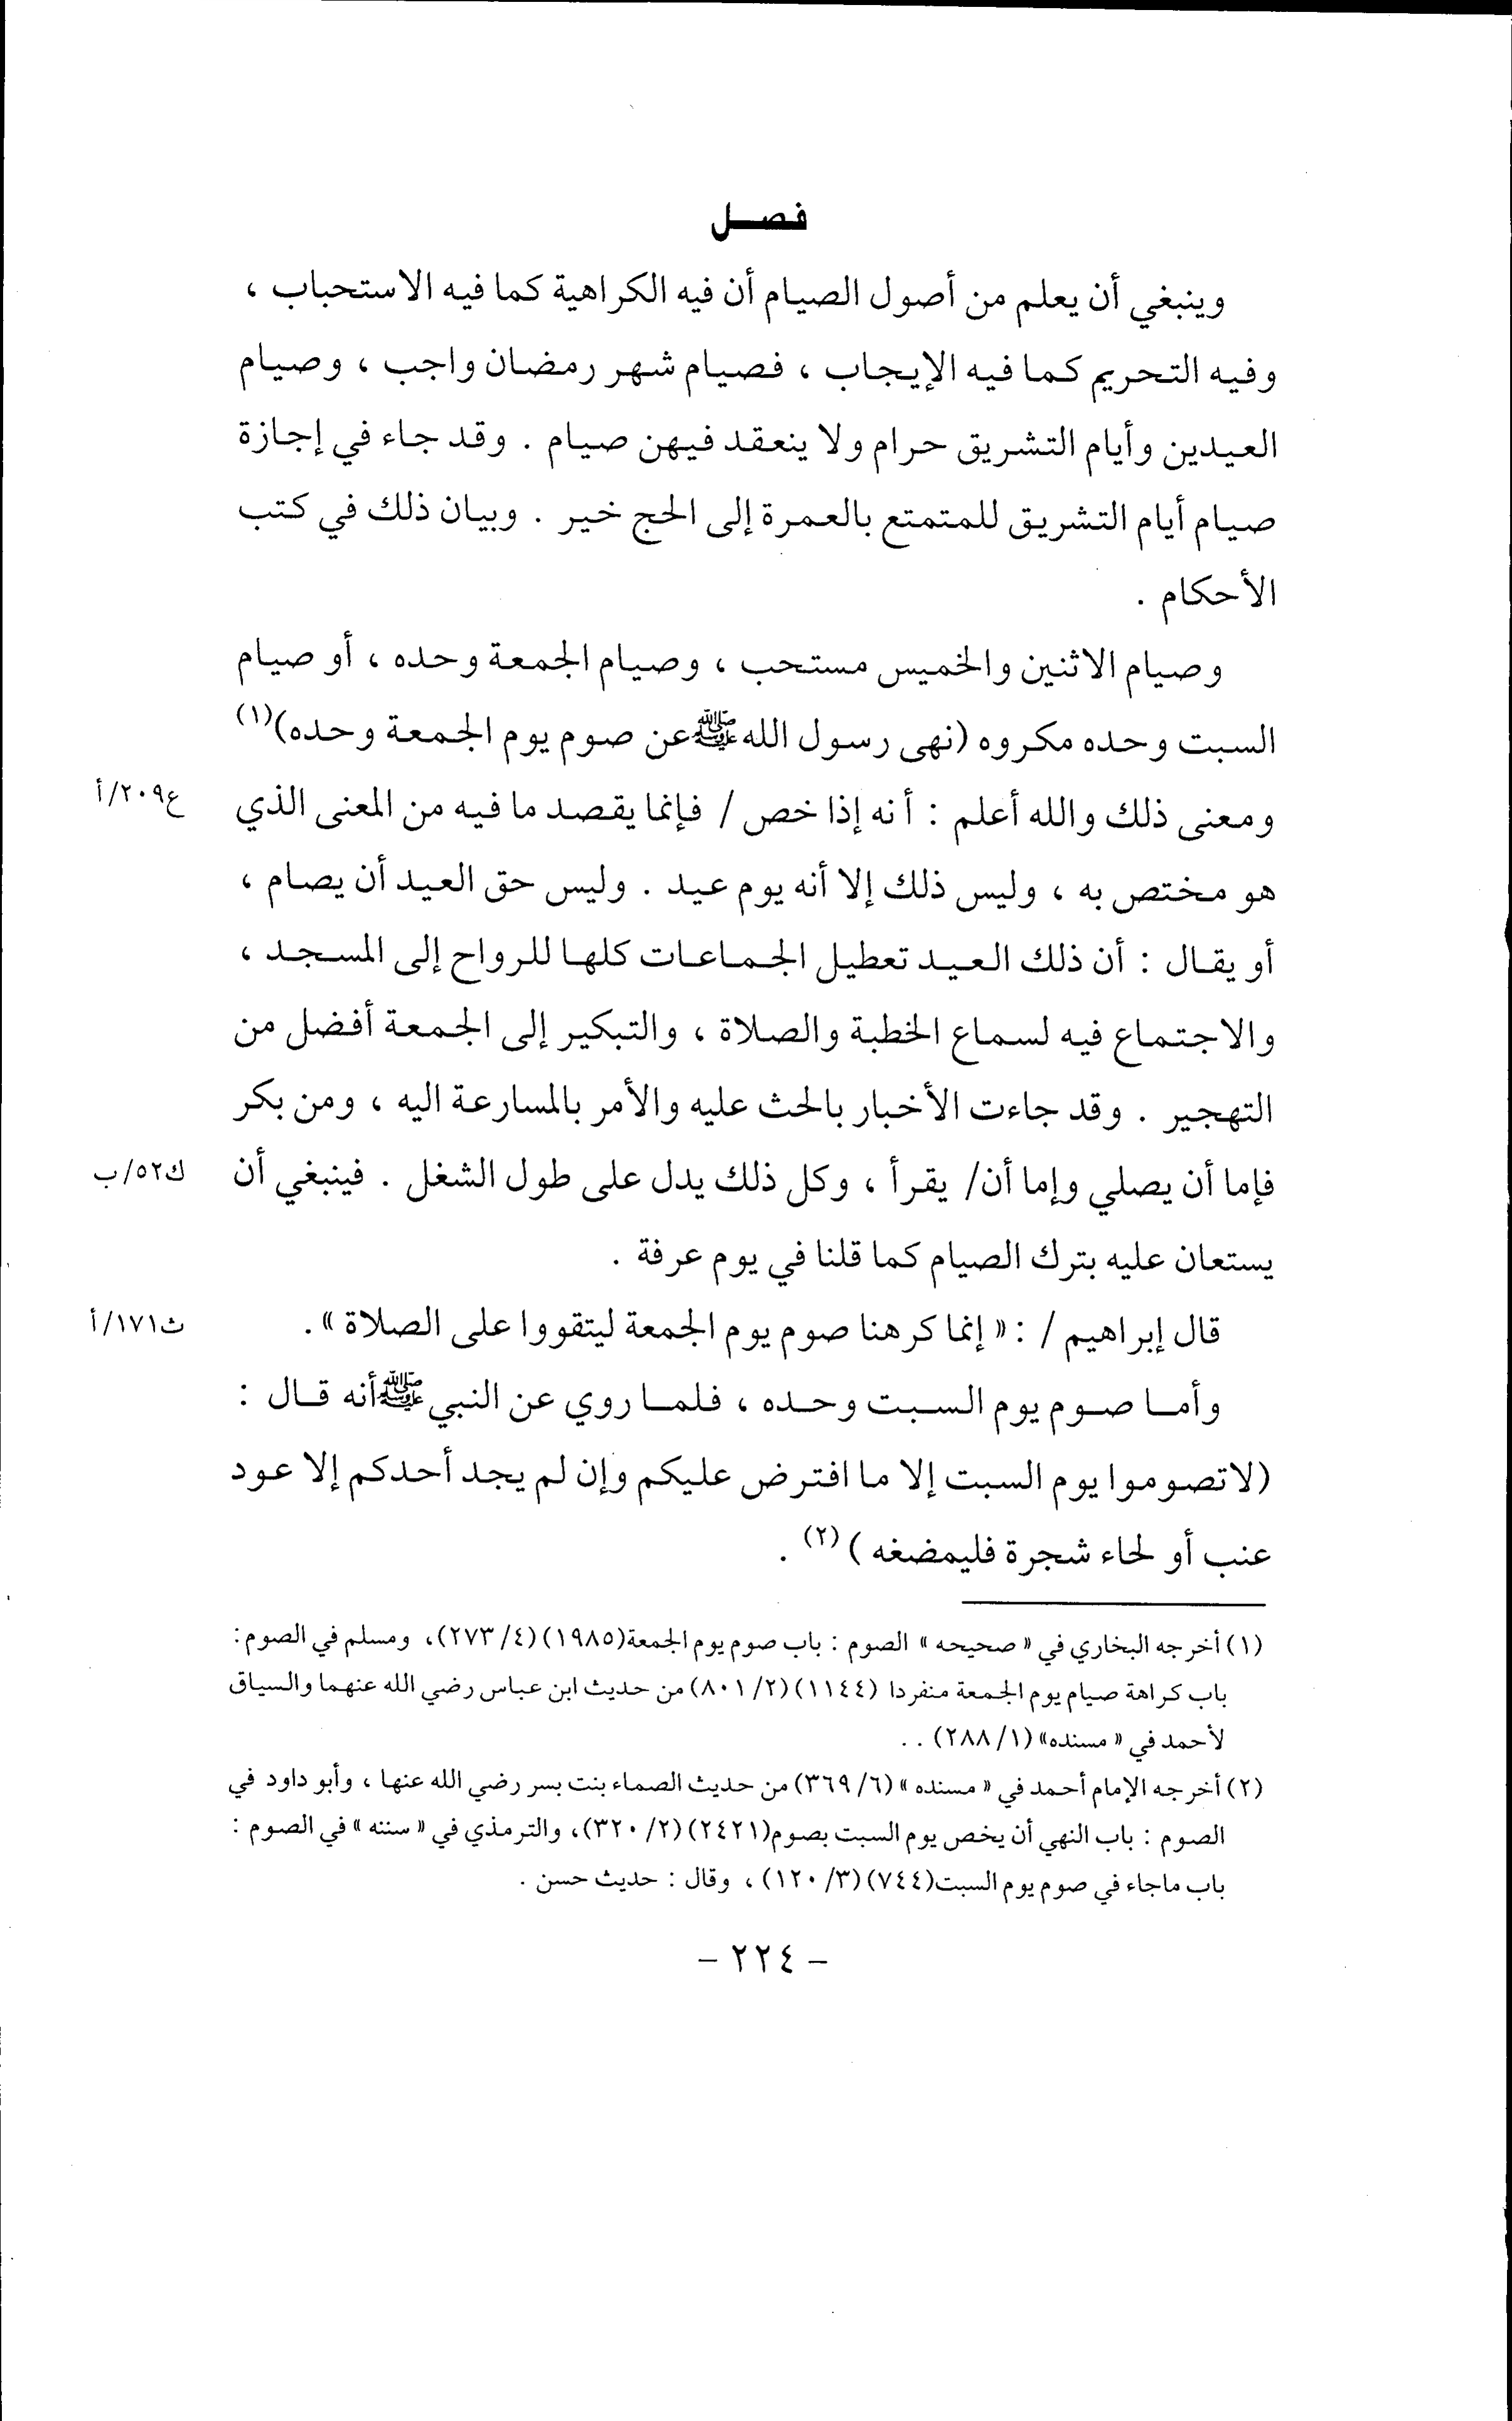 فصـــل
وينبغي أن يعلم من أصول الصيام أن فيه الكراهية كما فيه الاستحباب ،
وفيه التحريم كما فيه الإيجاب ، فصيام شهر رمضان واجب ، وصيام
العيدين وأيام التشريق حرام ولا ينعقد فيهن صيام . وقد جاء في إجازة
صيام أيام التشريق للمتمتع بالعمرة إلى الحج خير . وبيان ذلك في كتب
الأحكام .
وصيام الاثنين والخميس مستحب ، وصيام الجمعة وحده ، أو صيام
السبت وحده مكروه (نهى رسول الله ﷺ عن صوم يوم الجمعة وحده)(١)
ومعنى ذلك والله أعلم : أنه إذا خص / فإنما يقصد ما فيه من المعنى الذي ع٢٠٩/أ
هو مختص به ، وليس ذلك إلا أنه يوم عيد . وليس حق العيد أن يصام ،
أو يقال : أن ذلك العيد تعطيل الجماعات كلها للرواح إلى المسجد ،
والاجتماع فيه لسماع الخطبة والصلاة ، والتبكير إلى الجمعة أفضل من
التهجير . وقد جاءت الأخبار بالحث عليه والأمر بالمسارعة اليه ، ومن بكر
فإما أن يصلي وإما أن/ يقرأ ، وكل ذلك يدل على طول الشغل . فينبغي أن ك٥٢/ب
يستعان عليه بترك الصيام كما قلنا في يوم عرفة .
قال إبراهيم / : « إنما كرهنا صوم يوم الجمعة ليتقووا على الصلاة » . ث١٧١/أ
وأما صوم يوم السبت وحده ، فلما روي عن النبي ﷺ أنه قال :
(لا تصوموا يوم السبت إلا ما افترض عليكم وإن لم يجد أحدكم إلا عود
عنب أو لحاء شجرة فليمضغه ) (٢) .
(١) أخرجه البخاري في « صحيحه » الصوم : باب صوم يوم الجمعة(١٩٨٥) (٤/ ٢٧٣)، ومسلم في الصوم :
باب كراهة صيام يوم الجمعة منفردا (١١٤٤) (٢/ ٨٠١) من حديث ابن عباس رضي الله عنهما والسياق
لأحمد في « مسنده» (١/ ٢٨٨) . .
(٢) أخرجه الإمام أحمد في « مسنده » (٦/ ٣٦٩) من حديث الصماء بنت بسر رضي الله عنها ، وأبو داود في
الصوم : باب النهي أن يخص يوم السبت بصوم(٢٤٢١) (٢/ ٣٢٠)، والترمذي في « سننه » في الصوم :
باب ماجاء في صوم يوم السبت(٧٤٤) (٣/ ١٢٠) ، وقال : حديث حسن .
– ٢٢٤ –